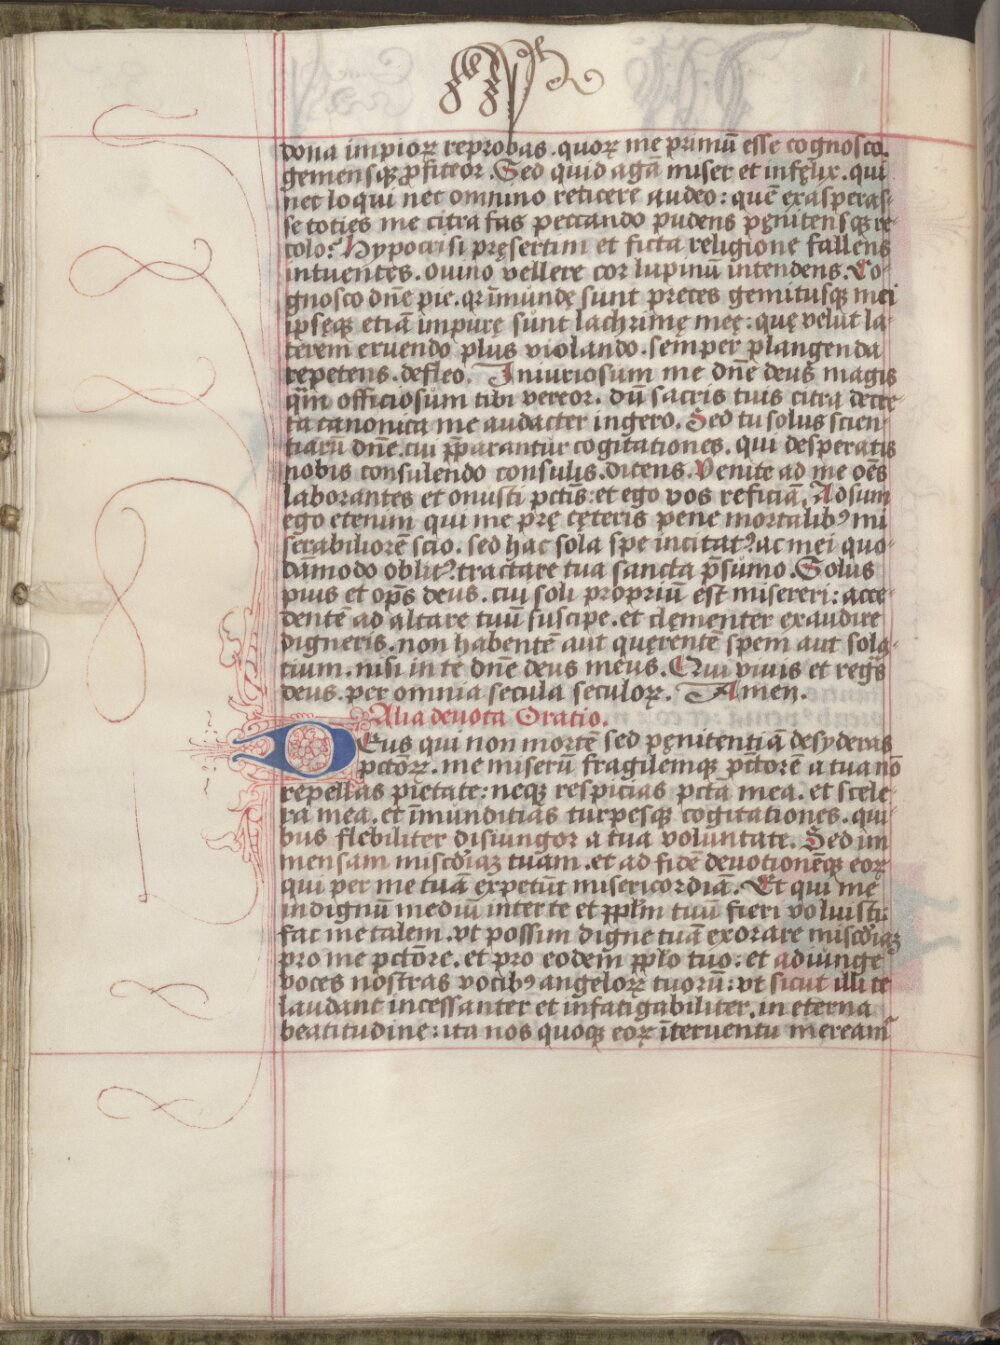 dona impioꝝ reprobas. quoꝝ me primū esse cognosco.
gemensqꝫ ꝓfiteor. Sed quid agā miser et infęlix. qui
nec loqui nec omnino reticere audeo: quē exasperas-
se toties me citra fas peccando pudens pęnitensqꝫ re-
colo? Hypocrisi pręsertim et ficta religione fallens
intuentes. ouino vellere cor lupinū intendens. Co-
gnosco dn̄e pie. qꝛ īmundę sunt pręces gemitusqꝫ mei
ipseqꝫ etiā impurę sunt lachrimę męę: quę velut la-
terem eruendo plus violando. semper plangenda
repetens. defleo. Iniuriosum me dn̄e deus magis
qm̄ officiosum tibi vereor. dū sacris tuis citra decre-
ta canonica me audacter ingero. Sed tu solus scien-
tiarū dn̄e. cui p̄parantur cogitationes. qui desperatis
nobis consulendo consulis. dicens. Venite ad me oēs
laborantes et onusti pctis: et ego vos reficiā. Adsum
ego etenim qui me prę cęteris pene mortalibꝰ mi
serabiliorē scio. sed hac sola spe incitatꝰ. ac mei quo-
dāmodo oblitꝰ. tractare tua sancta p̄sumo. Solus
pius et op̄s deus. cui soli propriū est misereri: acce-
dentē ad altare tuū suscipe. et clęmenter exaudire
digneris. non habentē aut quęrentē spem aut sola-
tium. nisi in te dn̄e deus meus. Qui viuis et regs̄
deus. per omnia secula seculoꝝ. Amen.
Alia deuota Oratio.
DEus qui non mortē sed pęnitentiā desyderas
pctōꝝ. me miserū fragilemqꝫ pctōrē a tua nō
repellas pietate: neqꝫ respicias pctā mea. et scele-
ra mea. et īmunditias turpesqꝫ cogitationes. qui-
bus flebiliter disiungor a tua voluntate. Sed im
mensam miscd̄iaꝫ tuam. et ad fidē deuotionēqꝫ eoꝝ
qui per me tuā expetūt misericordiā. Et qui me
indignū mediū inter te et ꝓplm̄ tuū fieri voluisti:
fac me talem. vt possim digne tuā exorare miscd̄iaꝫ
pro me pctōre. et pro eodem ꝓplo tuo: et adiunge
voces nostras vocibꝰ angeloꝝ tuorū: vt sicut illi te
laudant incessanter et infatigabiliter. in eterna
beatitudine: ita nos quoqꝫ eoꝝ īteruentu mereamꝰ